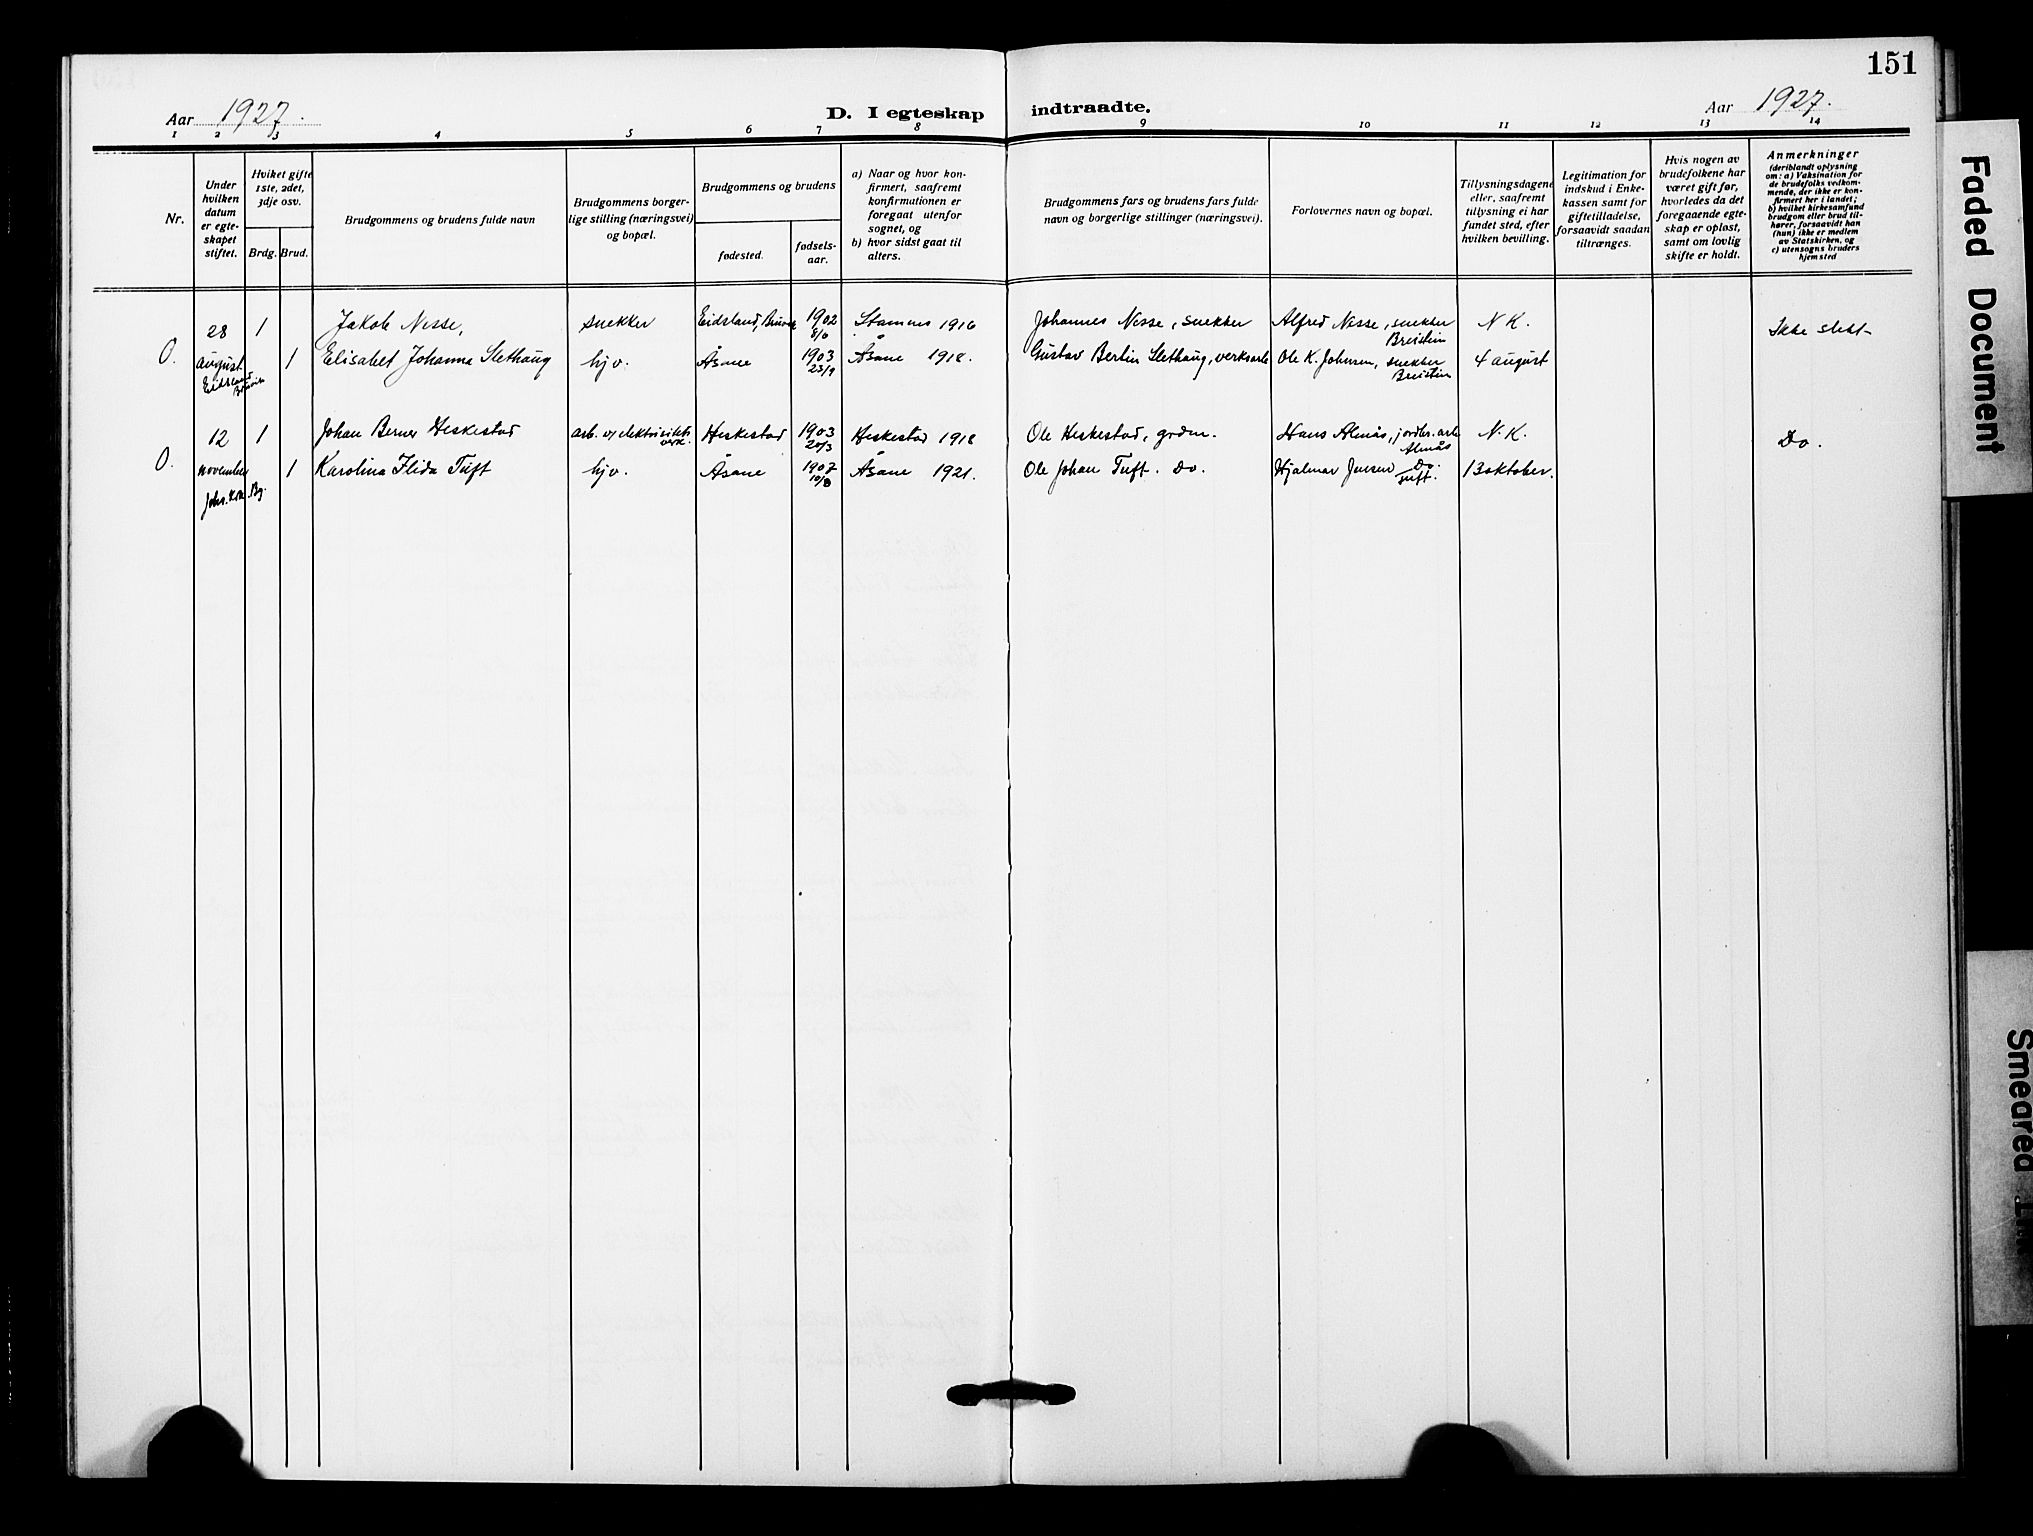 151
Aar 1927.
D. I egteskap indtraadte.
Aar 1927.
1 2 3 4 5 6 7 8 9 10 11 12 13 14
Nr.
Under hvilken datum er egte- skapet stiftet.
Hviket gifte 1ste, 2det, 3dje osv.
Brdg. Brud.
Brudgommens og brudens fulde navn
Brudgommens borger- lige stilling (næringsvei) og bopæl.
Brudgommens og brudens
fødested.
fødsels- aar.
a) Naar og hvor kon- firmert, saafremt konfirmationen er foregaat utenfor sognet, og
b) hvor sidst gaat til alters.
Brudgommens fars og brudens fars fulde navn og borgerlige stillinger (næringsvei).
Forlovernes navn og bopæl.
Tillysningsdagene eller, saafremt tillysning ei har fundet sted, efter hvilken bevilling.
Legitimation for indskud i Enke- kassen samt for giftetilladelse, forsaavidt saadan tiltrænges.
Hvis nogen av brudefolkene har været gift før, hvorledes da det foregaaende egte- skap er opløst, samt om lovlig skifte er holdt.
Anmerkninger (deriblandt oplysning om: a) Vaksination for de brudefolks vedkom- mende, der ikke er kon- firmert her i landet; b) hvilket kirkesamfund brudgom eller brud til- hører, forsaavidt han (hun) ikke er medlem av Statskirken, og c) utensogns bruders hjemsted
28 1 Jakob Nesse, snekker Eidsland, 1902 8/6 Stamnes 1916 Johannes Nesse, snekker Alfred Nesse, snekker Breistein N K. Ikke slekt
O. august Eidsland 1 Elisabet Johanna Slethaug hjv. Åsane 1903 23/9 Åsane 1918. Gustav Bertin Slethaug, verksarb Ole K. Johnsen, snekker Breistein 4 august
12 1 Johan Berner Heskestad arb. v/ elektrisitets verk. Heskestad 1903 20/3 Heskestad 1918 Ole Heskestad, grdm. Hans Almås, jordbr. arb Almås N. K. Do.
O. november Johs. Krk. Bg. 1 Karolina Flida Tuft hjv. Åsane 1907 10/8 Åsane 1921. Ole Johan Tuft. Do. Hjalmar Jensen Do. Tuft. 13 oktober.
Faded Document
Smeared